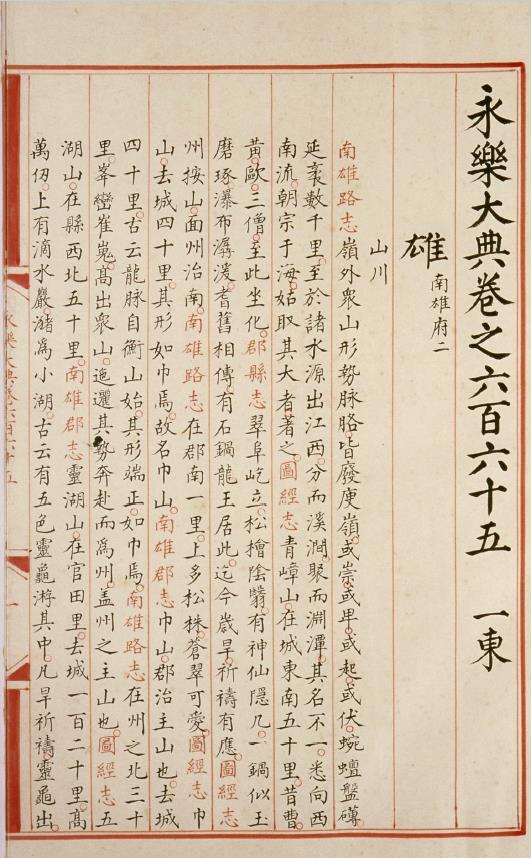 永樂大典卷之六百六十五　一東
雄　南雄府二
山川
南雄路志嶺外衆山形勢脉胳皆廢庾嶺或崇或卑或起或伏蜿蟺盤礴
延袤數千里至於諸水源出江西分而溪澗聚而淵潭其名不一悉向西
南流朝宗于海姑取其大者著之圖經志青嶂山在城東南五十里昔曹
黄歐三僧至此坐化郡縣志翠阜屹立松檜陰翳有神仙隱几一鍋似玉
磨琢瀑布潺湲耆舊相傳有石鍋龍王居此迄今歲旱祈禱有應圖經志
州按山面州治南南雄路志在郡南一里上多松株蒼翠可愛圖經志巾
山去城四十里其形如巾焉故名巾山南雄郡志巾山郡治主山也去城
四十里古云龍脉自衡山始其形端正如巾焉南雄路志在州之北三十
里峯巒崔嵬高出衆山迤邐其勢奔赴而爲州盖州之主山也圖經志五
湖山在縣西北五十里南雄郡志靈湖山在官田里去城一百二十里高
萬仭上有滴水巖瀦爲小湖古云有五色靈龜游其中凡旱祈禱靈龜出
永樂大典卷六百六十五
一